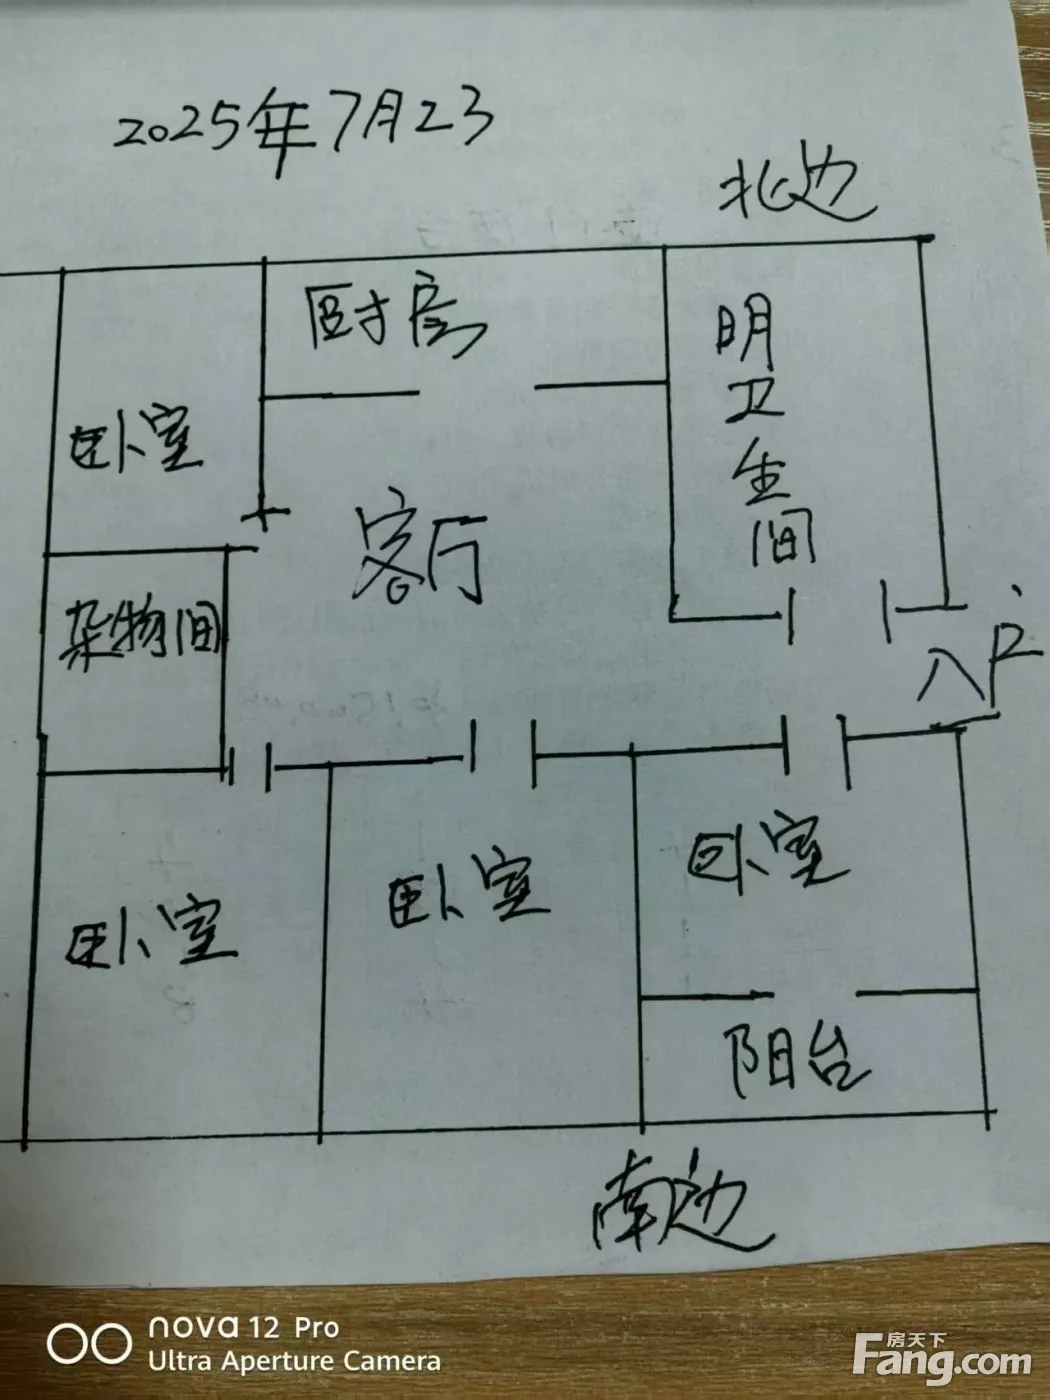 2025年7月23
北边
厨房
明卫生间
卧室
客厅
杂物间
入户
卧室
卧室
卧室
阳台
南边
nova 12 Pro
Ultra Aperture Camera
房天下
Fang.com